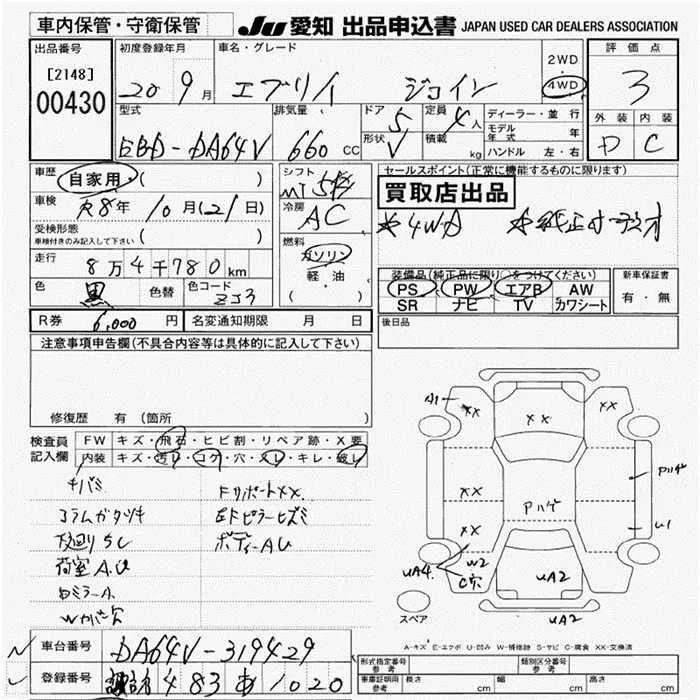 車内保管・守衛保管
JU 愛知 出品申込書 JAPAN USED CAR DEALERS ASSOCIATION
出品番号
[2148]
00430
初度登録年月
20 9月
車名・グレード
エブリイ ジョイン
2WD
4WD
評価点
3
外装 内装
D C
型式
EBD-DA64V
排気量
660 cc
ドア
5
形状
V
定員
4人
積載
kg
ディーラー・並行
モデル年式 年
ハンドル 左・右
車歴
自家用・( )
車検
R8年 10月(21日)
受検形態
車検付きのみ記入して下さい ( )
走行
8万4千780km
色
黒
色替
色コード
ZJ3
シフト
MT 5速
冷房
AC
燃料
ガソリン
軽・油
( )
セールスポイント(正常に機能するものに限ります)
買取店出品
*4WD *純正オーディオ
装備品(純正品に限り○をつけてください)
PS PW エアB AW
SR ナビ TV カワシート
新車保証書
有・無
後日品
R券 6,000円
名変通知期限 月 日
注意事項申告欄(不具合内容等は具体的に記入して下さい)
修復歴 有(箇所
検査員記入欄
FW キズ・飛石・ヒビ割・リペア跡・X要
内装 キズ・汚れ・コゲ・穴・スレ・キレ・破れ
チバミ
コラムガタツキ
下廻りSC
荷室A.U
Rミラー A.
Wカバー欠
FサポートXX.
左Fピラーヒズミ
ボディーAU
A1
XX
XX
XX
XX
XX
Pハゲ
Pハゲ
U1
UA4.
W2
C穴
UA2
UA2
スペア
A-キズ E-エクボ U-凹み W-補修跡 S-サビ C-腐食 XX-交換済
車台番号
DA64V-319429
登録番号
483 あ 1020
形式指定番号 参考
類別区分番号 参考
車庫証明用 参考
長さ cm
幅 cm
高さ cm